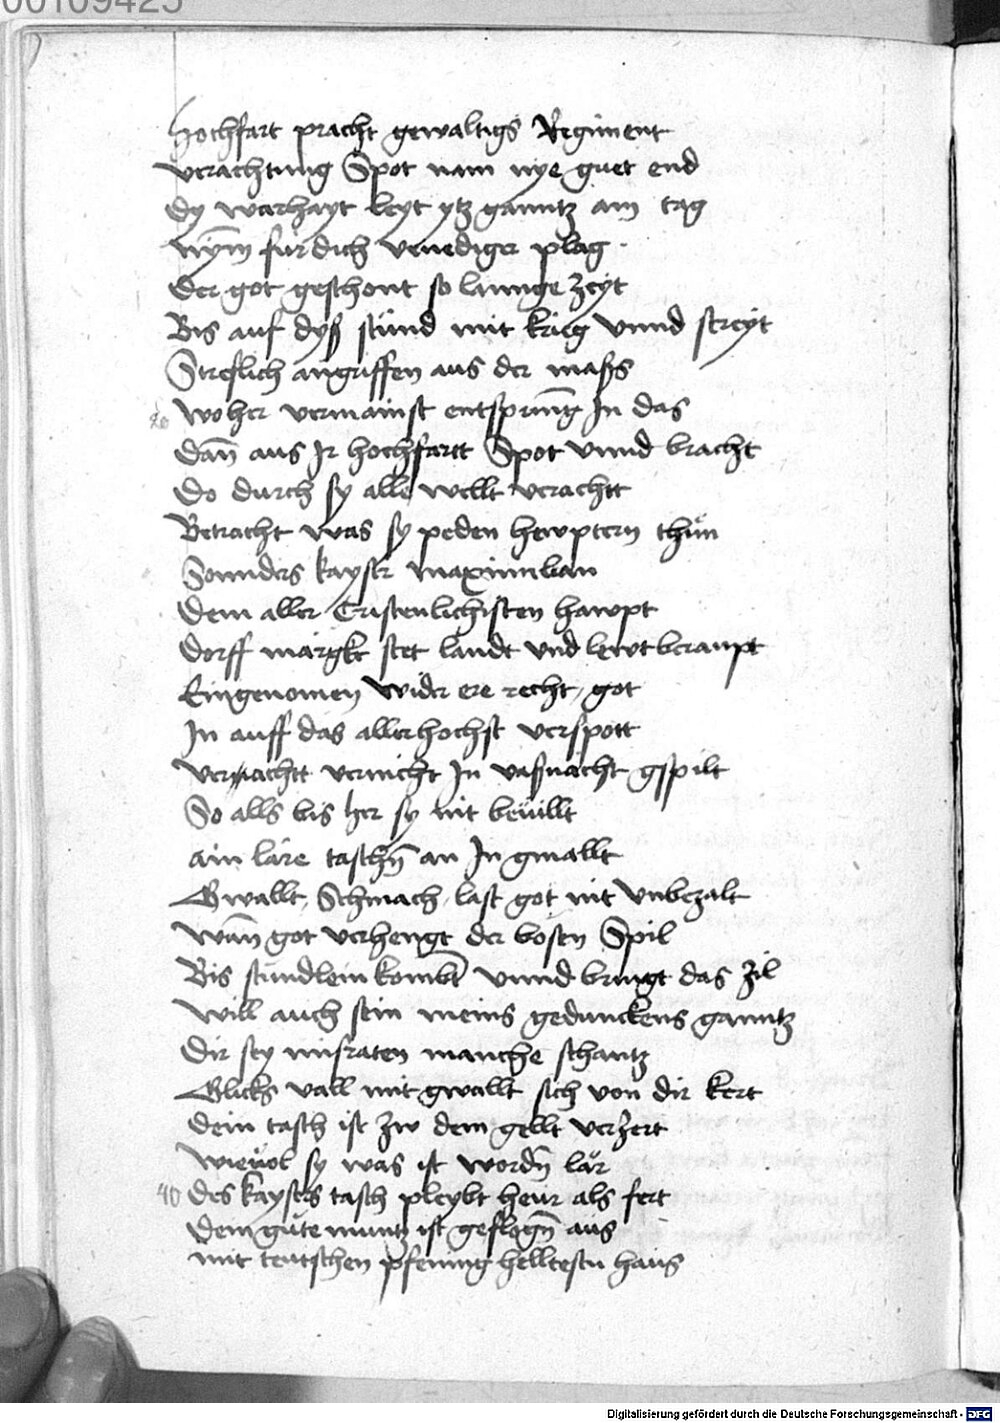 00109425
Hochfart pracht gewaltigs Regiment
verachtung Spot nam nye guet end
dy warhayt leyt ytz ganntz am tag
nym fur dich venediger plag
der got geschont so lannge zeyt
Bis auf dyß stund mit krieg vnnd streyt
Streflich angriffen aus der maßs
20 woher vermainst entsprung In das
dan aus Ir hochfartt Spot vnnd bracht
do durch sy alle wellt verachtt
Betracht was sy peden hewptern thun
Sonnders kayser maximilian
dem aller Cristenlichisten hawpt
dorff margkt stet landt vnd lewt beraupt
Eingenomen wider ere recht got
In auff das allerhochst verspott
vernachtt vernicht In vasnacht gspilt
So alls bis her sy nit bevillt
ain lare taschn an In gmallt
Gwallt Schmach last got nit vnbezalt
wan got verhengt der bosen Spil
Bis stundlein kombt vnnd bringt das zil
will auch sein meins gedunckens ganntz
dir sey misraten manche schantz
Glicks vall mit gwallt sich von dir kert
dein tasch ist zw dem gellt verzert
wieuol sy was ist wordn lar
40 des kaysers tasch pleybt heur als fert
dem gute muntz ist geflogn aus
mit teutschen pfening helltestu haus
Digitalisierung gefördert durch die Deutsche Forschungsgemeinschaft - DFG